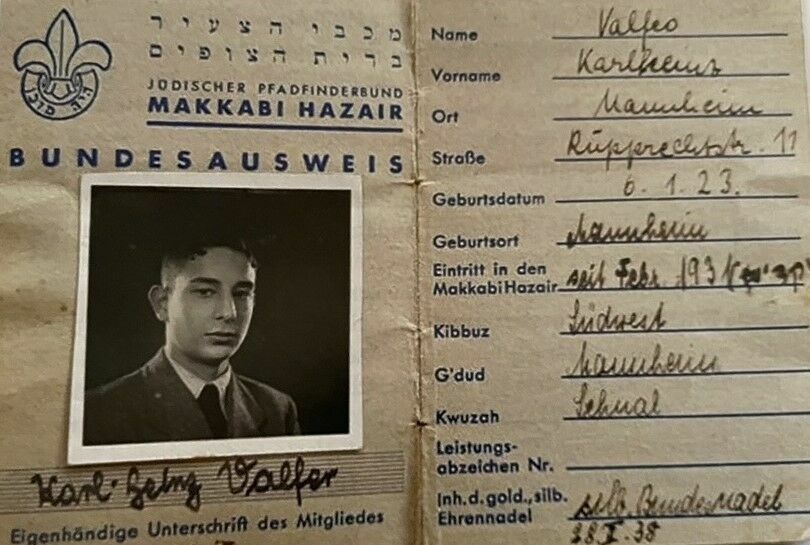 מכבי הצעיר
ברית הצופים
JÜDISCHER PFADFINDERBUND
MAKKABI HAZAIR
BUNDESAUSWEIS
Karl-Heinz Valfer
Eigenhändige Unterschrift des Mitgliedes
Name Valfer
Vorname Karlheinz
Ort Mannheim
Straße Rupprechtstr. 11
Geburtsdatum 6.1.23.
Geburtsort Mannheim
Eintritt in den
MakkabiHazair seit Febr.
Kibbuz Südwest
G'dud Mannheim
Kwuzah
Leistungs-
abzeichen Nr.
Inh.d.gold., silb.
Ehrennadel silb. Bundesnadel